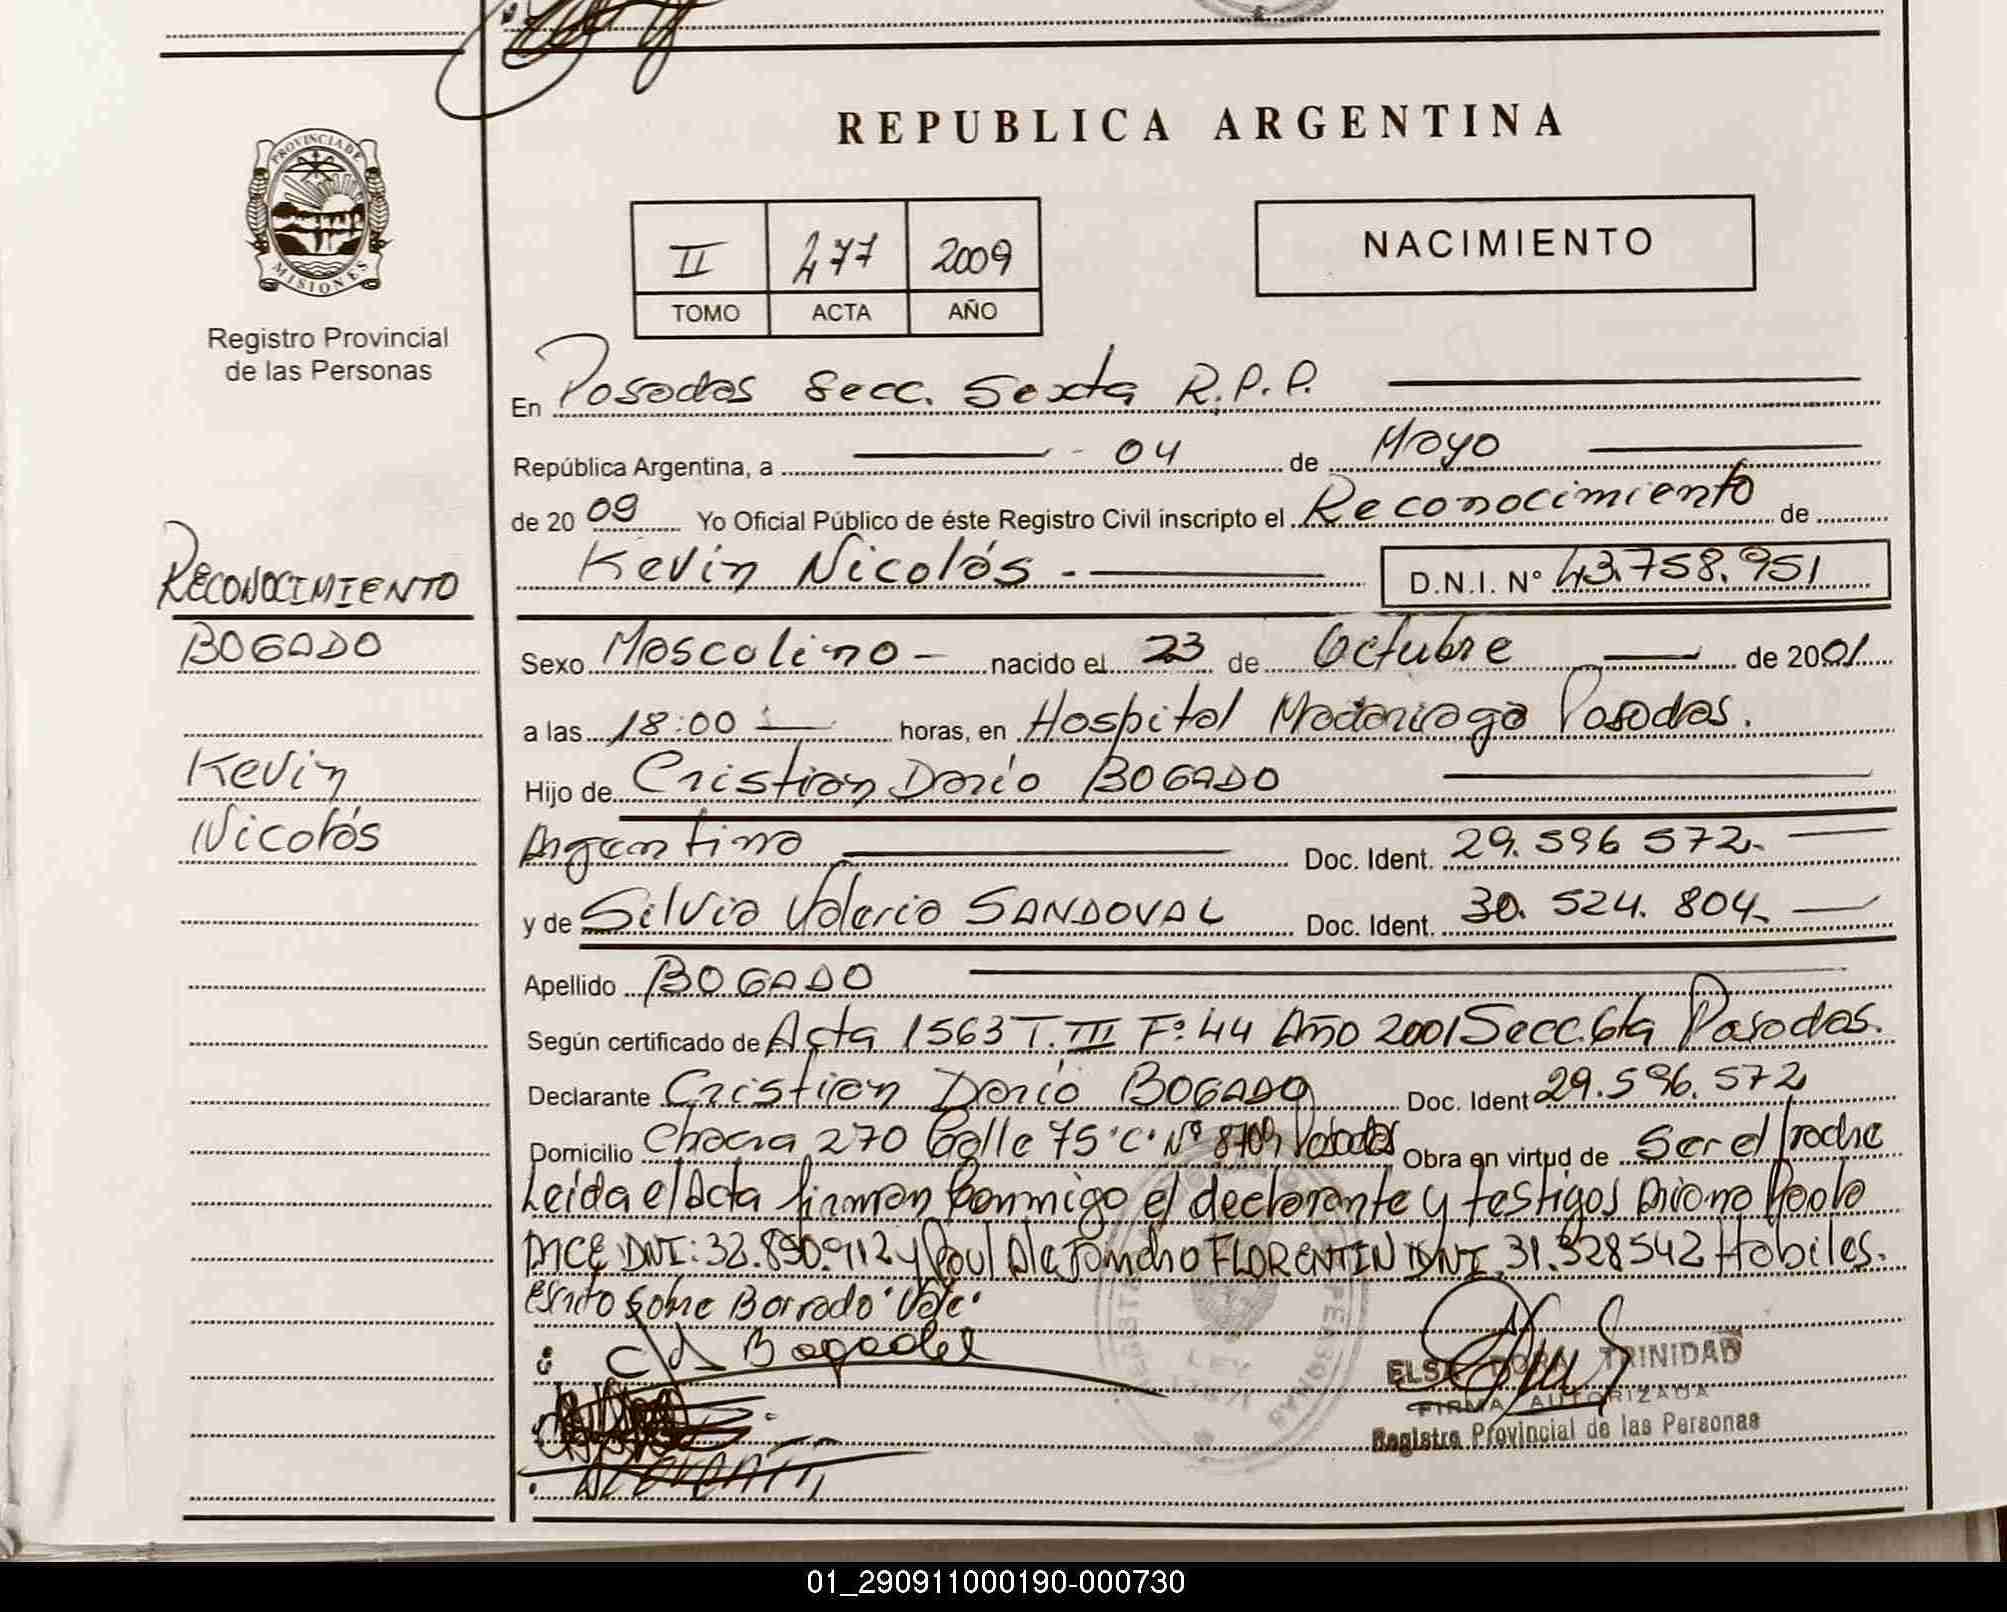 REPUBLICA ARGENTINA
PROVINCIA DE
MISIONES
Registro Provincial
de las Personas
II 477 2009
TOMO ACTA AÑO
NACIMIENTO
En Posadas Secc. Sexta R.P.P.
República Argentina, a 04 de Mayo
de 2009 Yo Oficial Público de éste Registro Civil inscripto el Reconocimiento de
Kevin Nicolás.- D.N.I. N° 43.758.951
RECONOCIMIENTO
BOGADO
Kevin
Nicolás
Sexo Masculino- nacido el 23 de Octubre de 2001
a las 18:00 horas, en Hospital Madariaga Posadas.
Hijo de Cristian Darío BOGADO
Argentino Doc. Ident. 29.596 572.-
y de Silvia Valeria SANDOVAL Doc. Ident. 30.524.804.-
Apellido BOGADO
Según certificado de Acta 1563 T.III F:44 Año 2001 Secc.6ta Posadas.
Declarante Cristian Darío BOGADO Doc. Ident 29.596.572
Domicilio Chacra 270 Calle 75 "C" N° 8709 Posadas Obra en virtud de Ser el Padre
Leída el Acta firman conmigo el declarante y testigos Paola
DNI: 32.890.912 y Raul Alejandro FLORENTIN DNI 31.328542 Habiles.
Escrito Sobre Borrado "Vale"
Bogado
ELSA DORA TRINIDAD
FIRMA AUTORIZADA
Registro Provincial de las Personas
01_290911000190-000730